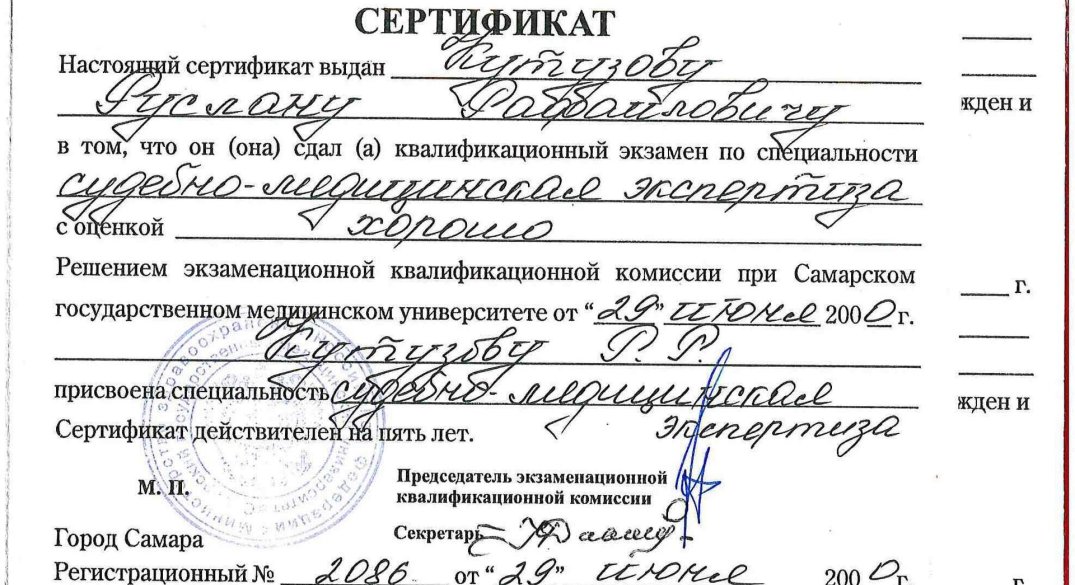 СЕРТИФИКАТ
Настоящий сертификат выдан Кутузову
Руслану Рафаиловичу
в том, что он (она) сдал (а) квалификационный экзамен по специальности
судебно-медицинская экспертиза
с оценкой хорошо
Решением экзаменационной квалификационной комиссии при Самарском
государственном медицинском университете от “29” июня 2000 г.
Кутузову Р. Р.
присвоена специальность судебно-медицинская
Сертификат действителен на пять лет. экспертиза
М. П.
Председатель экзаменационной
квалификационной комиссии
Секретарь
Город Самара
Регистрационный № 2086 от “29” июня 2000 г.
жден и
г.
жден и
г.